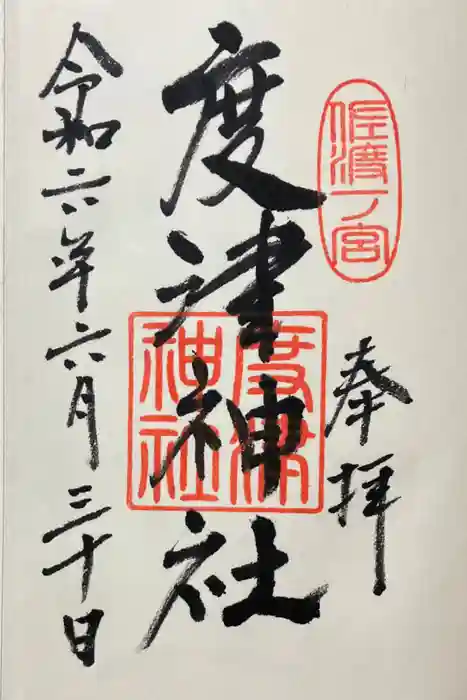 佐渡一ノ宮
奉拝
度津神社
度津神社
令和六年六月三十日